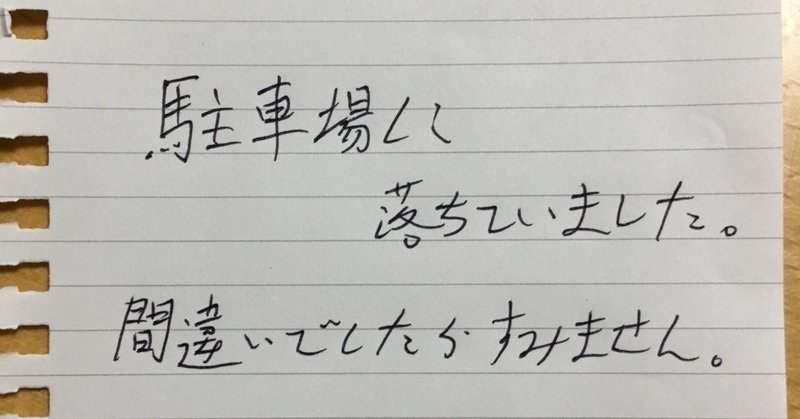 駐車場に
落ちていました。
間違いでしたらすみません。